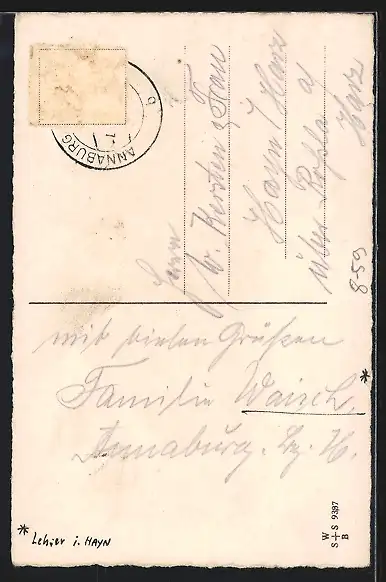 Herrn
W. Kerstin & Frau
Hayn / Harz
über Roßla a/
Harz
8-59
ANNABURG
mit vielen Grüßen
Familie Waisch. *
Annaburg. Bz. H.
* Lehrer i. HAYN
W
S+S 9387
B